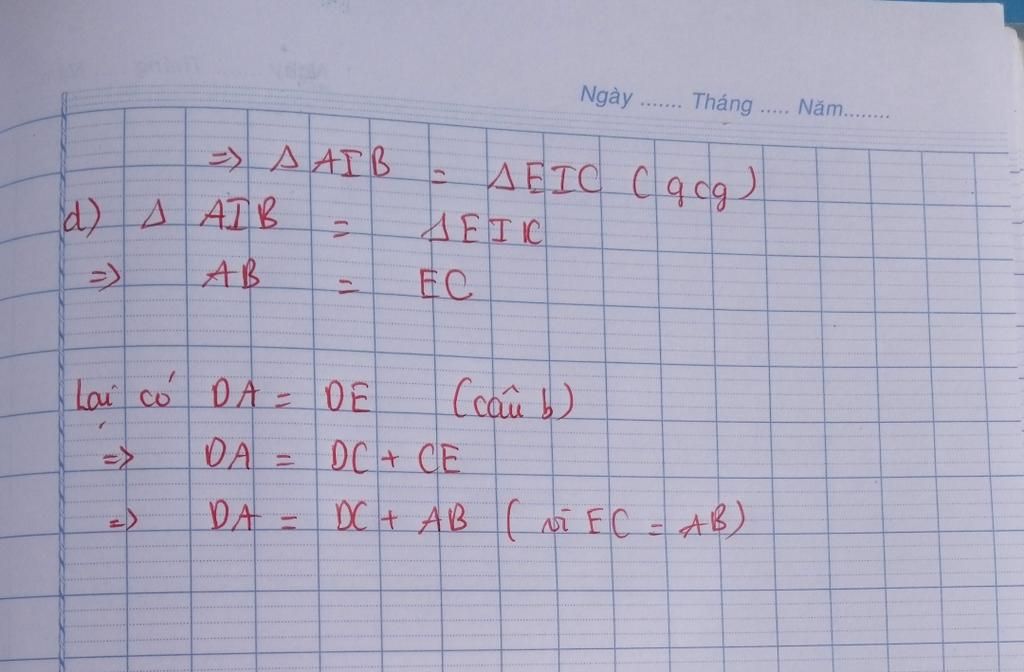 Ngày ....... Tháng ..... Năm........
=> Δ AIB = ΔEIC (gcg)
d) Δ AIB = ΔEIC
=> AB = EC
Lại có DA = DE (câu b)
=> DA = DC + CE
=> DA = DC + AB (vì EC = AB)